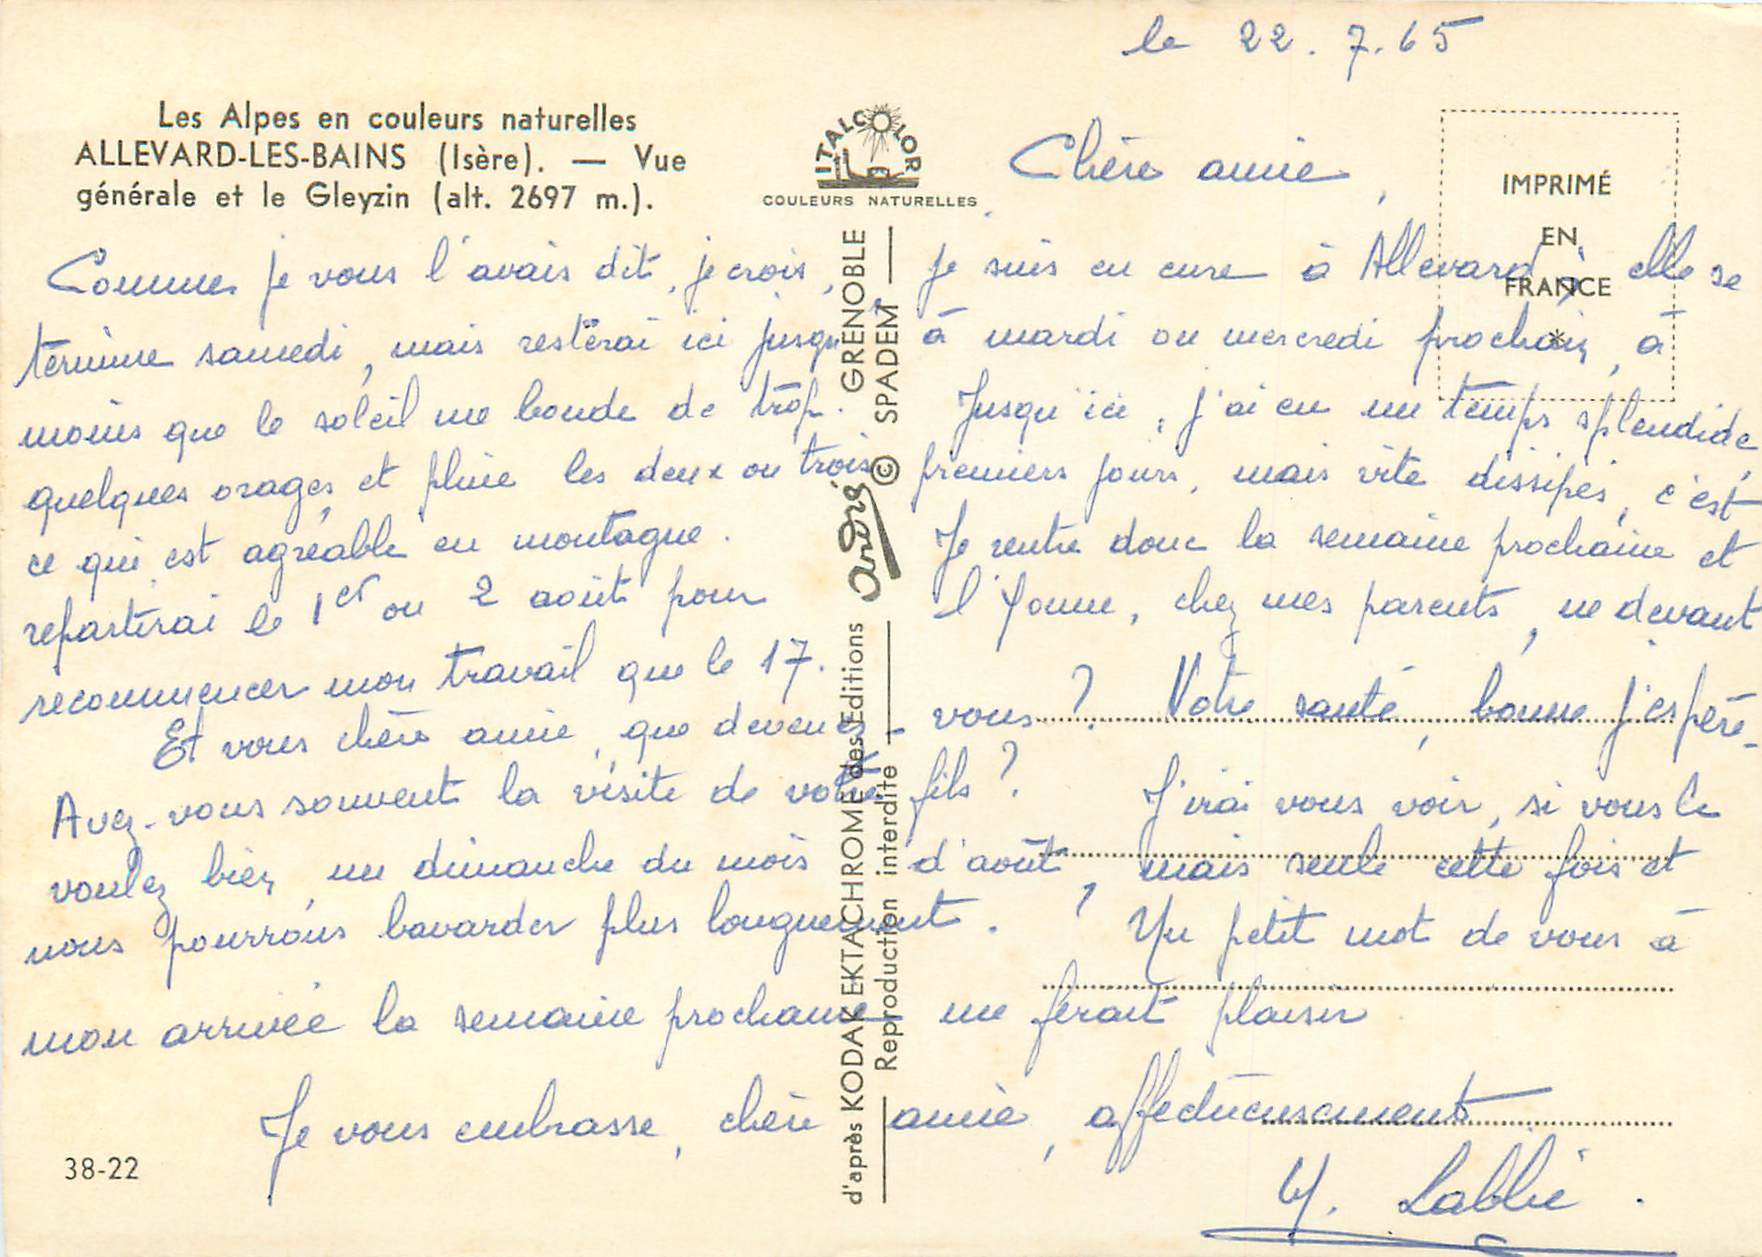 le 22.7.65
Les Alpes en couleurs naturelles
ALLEVARD-LES-BAINS (Isère). — Vue
générale et le Gleyzin (alt. 2697 m.).
ITALCOLOR
COULEURS NATURELLES
IMPRIMÉ
EN
FRANCE
*
Chère amie,
Comme je vous l'avais dit, je crois, je suis en cure à Allevard ; elle se
termine samedi, mais resterai ici jusqu'à mardi ou mercredi prochain, à
moins que le soleil me boude de trop. Jusqu'ici, j'ai eu un temps splendide,
quelques orages et pluie les deux ou trois premiers jours, mais vite dissipés, c'est
ce qui est agréable en montagne. Je rentre donc la semaine prochaine et
repartirai le 1er ou 2 août pour l'Yonne, chez mes parents, ne devant
recommencer mon travail que le 17.
Et vous chère amie, que devenez-vous ? Votre santé, bonne j'espère -
Avez-vous souvent la visite de votre fils ? J'irai vous voir, si vous le
voulez bien, un dimanche du mois d'août, mais seule cette fois et
nous pourrons bavarder plus longuement. Un petit mot de vous à
mon arrivée la semaine prochaine me ferait plaisir
Je vous embrasse, chère amie, affectueusement
Y. Labbé.
38-22
d'après KODAK EKTACHROME des Editions André GRENOBLE
Reproduction interdite © SPADEM